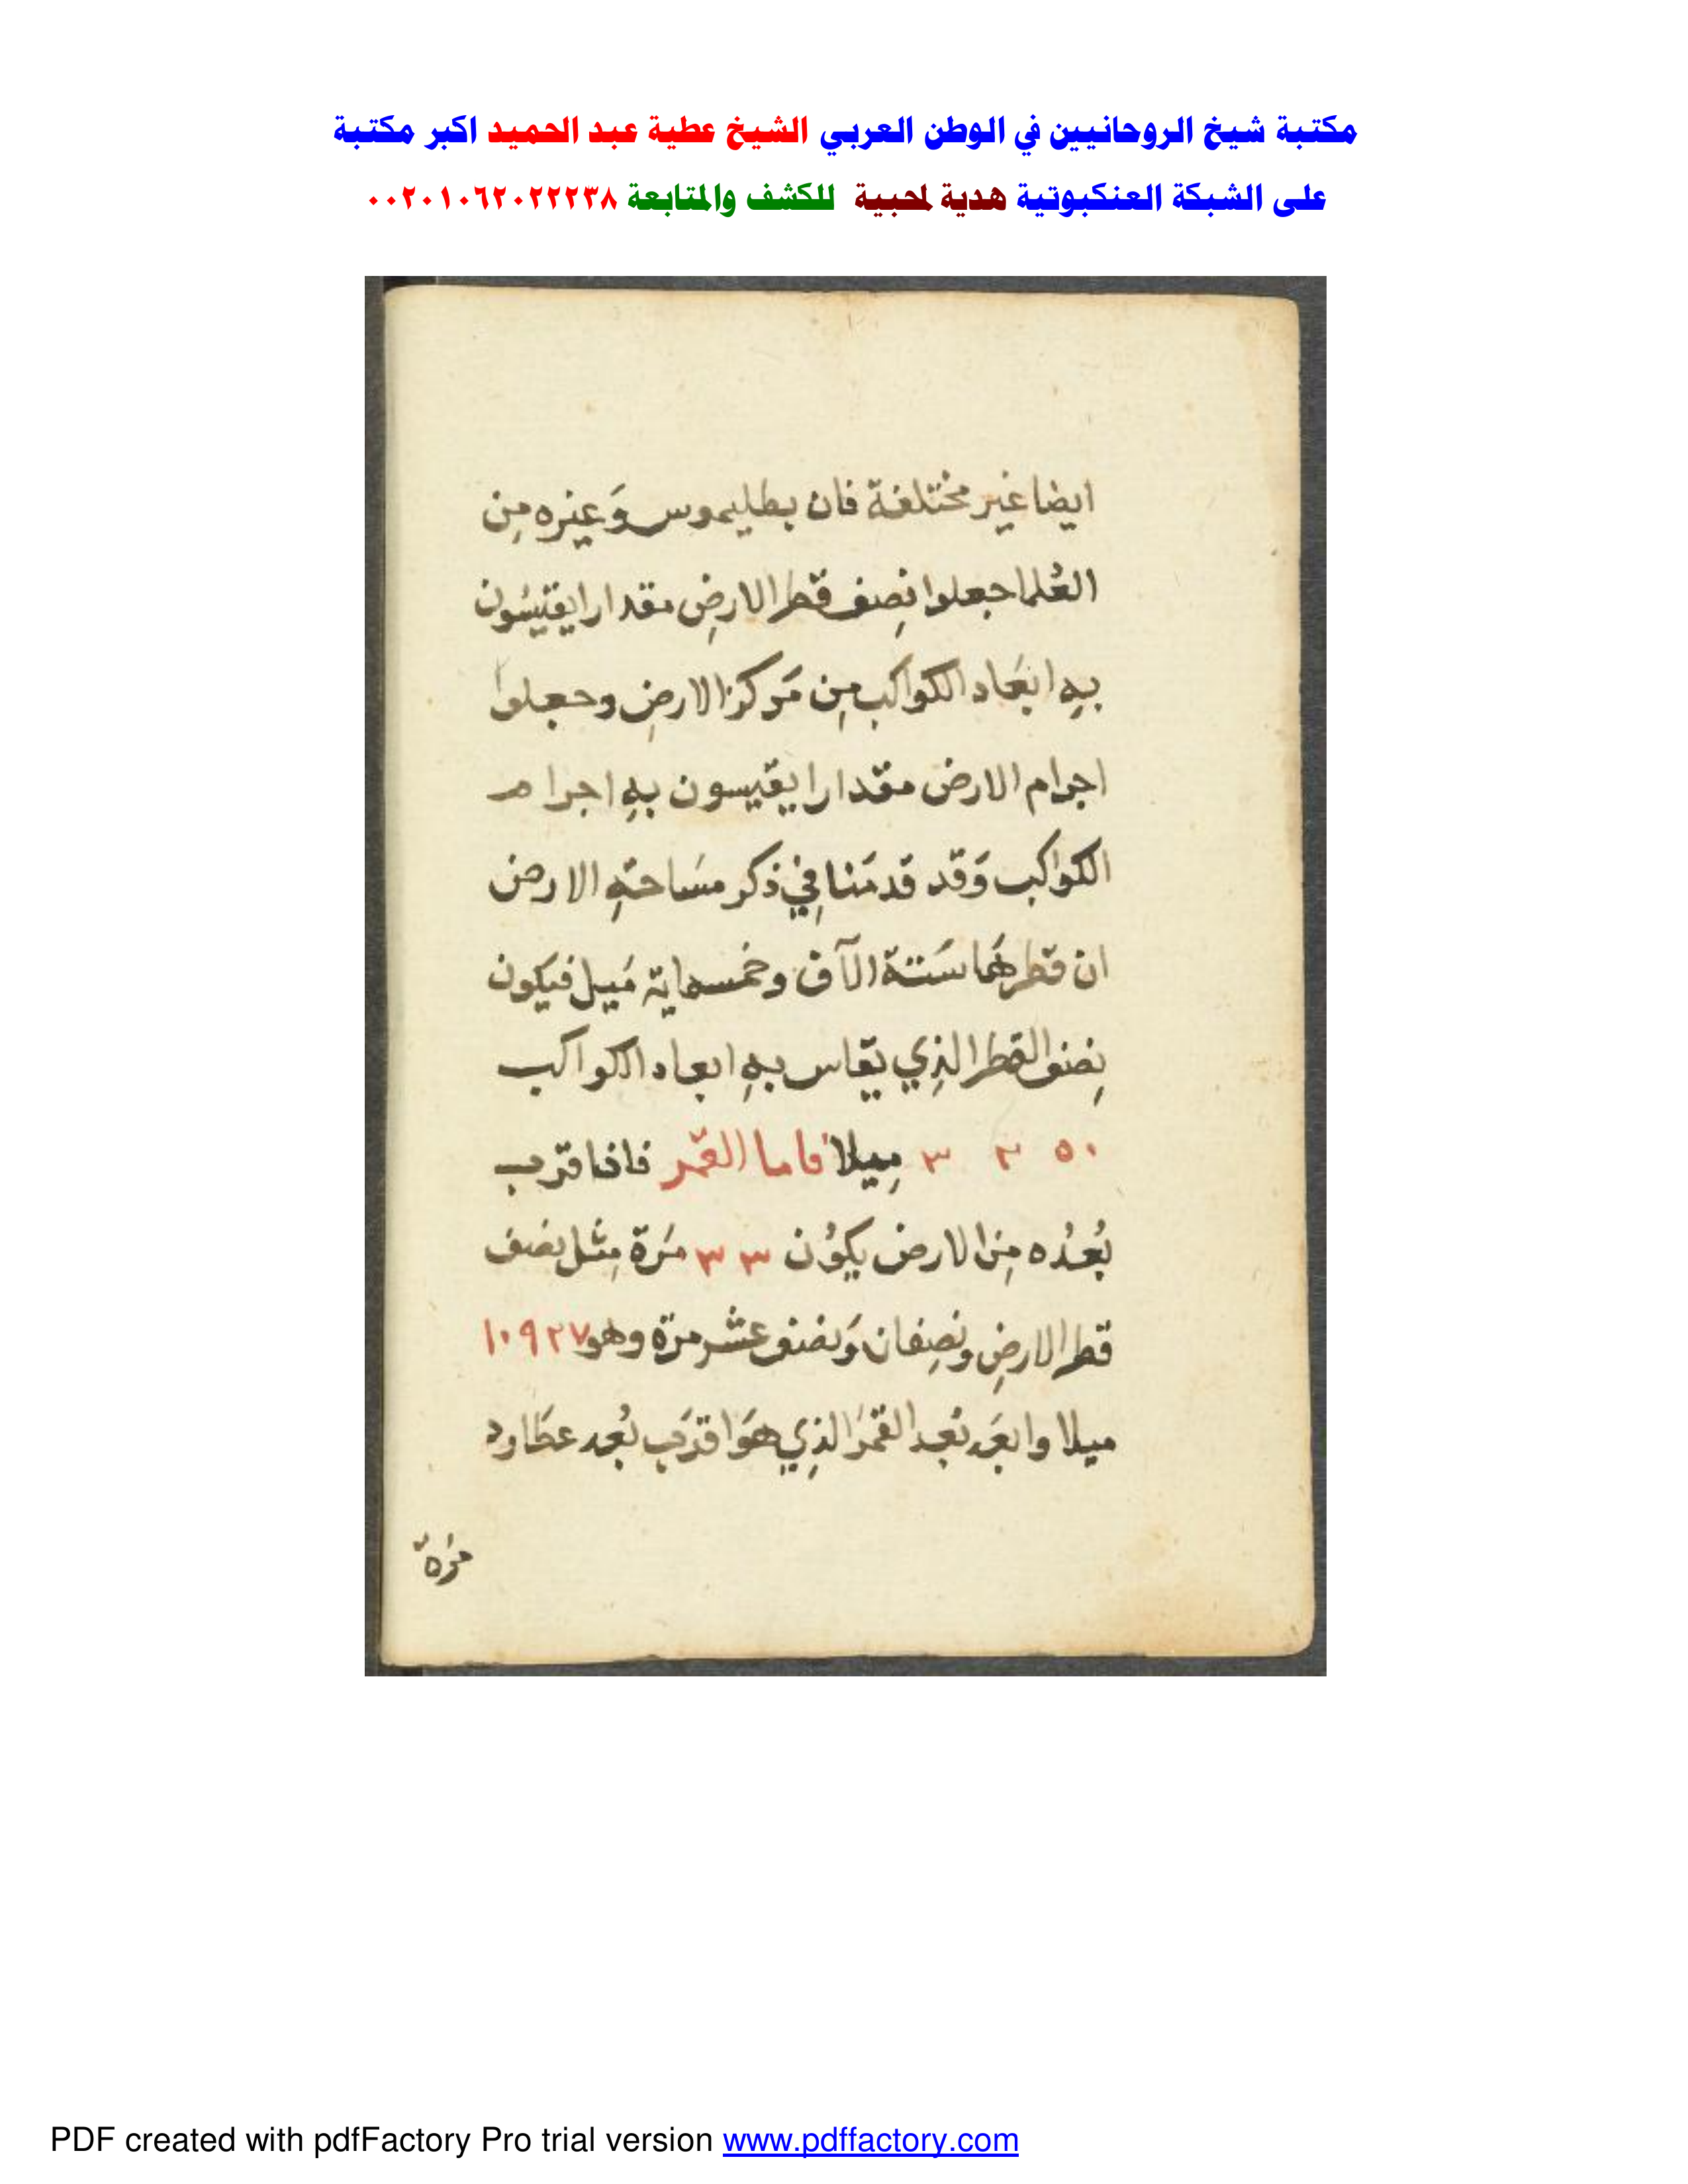 مكتبة شيخ الروحانيين في الوطن العربي الشيخ عطية عبد الحميد اكبر مكتبة
على الشبكة العنكبوتية هدية لمحبية للكشف والمتابعة ٠٠٢٠١٠٦٢٠٢٢٢٣٨
ايضا غير مختلفة فان بطليموس وَغيره مِن
العُلما جعلوا نِصف قطر الارضِ مقدارا يقيسُون
بهِ ابعَاد الكواكب مِن مَركز الارضِ وجعلوا
اجرام الارض مقدارا يقيسون بهِ اجرام
الكواكب وَقد قدمَنا فِي ذكر مسَاحةِ الارض
ان قطرهَا سَتة الآف وخمسماية مَيل فيكون
نِصف القطر الذِي يقاس بهِ ابعاد الكواكب
٣ ٢ ٥٠ مِيلا فاما القمر فان اقرب
بُعدُه مِن الارض يكوُن ٣٣ مَرة مِثل نصف
قطر الارضِ ونصِفان وَنصف عشر مرة وهو ١٠٩٢٧
ميلا وابعَد بُعد القمَر الذِي هوَ اقرَب بُعد عطَارد
مَرة
PDF created with pdfFactory Pro trial version www.pdffactory.com